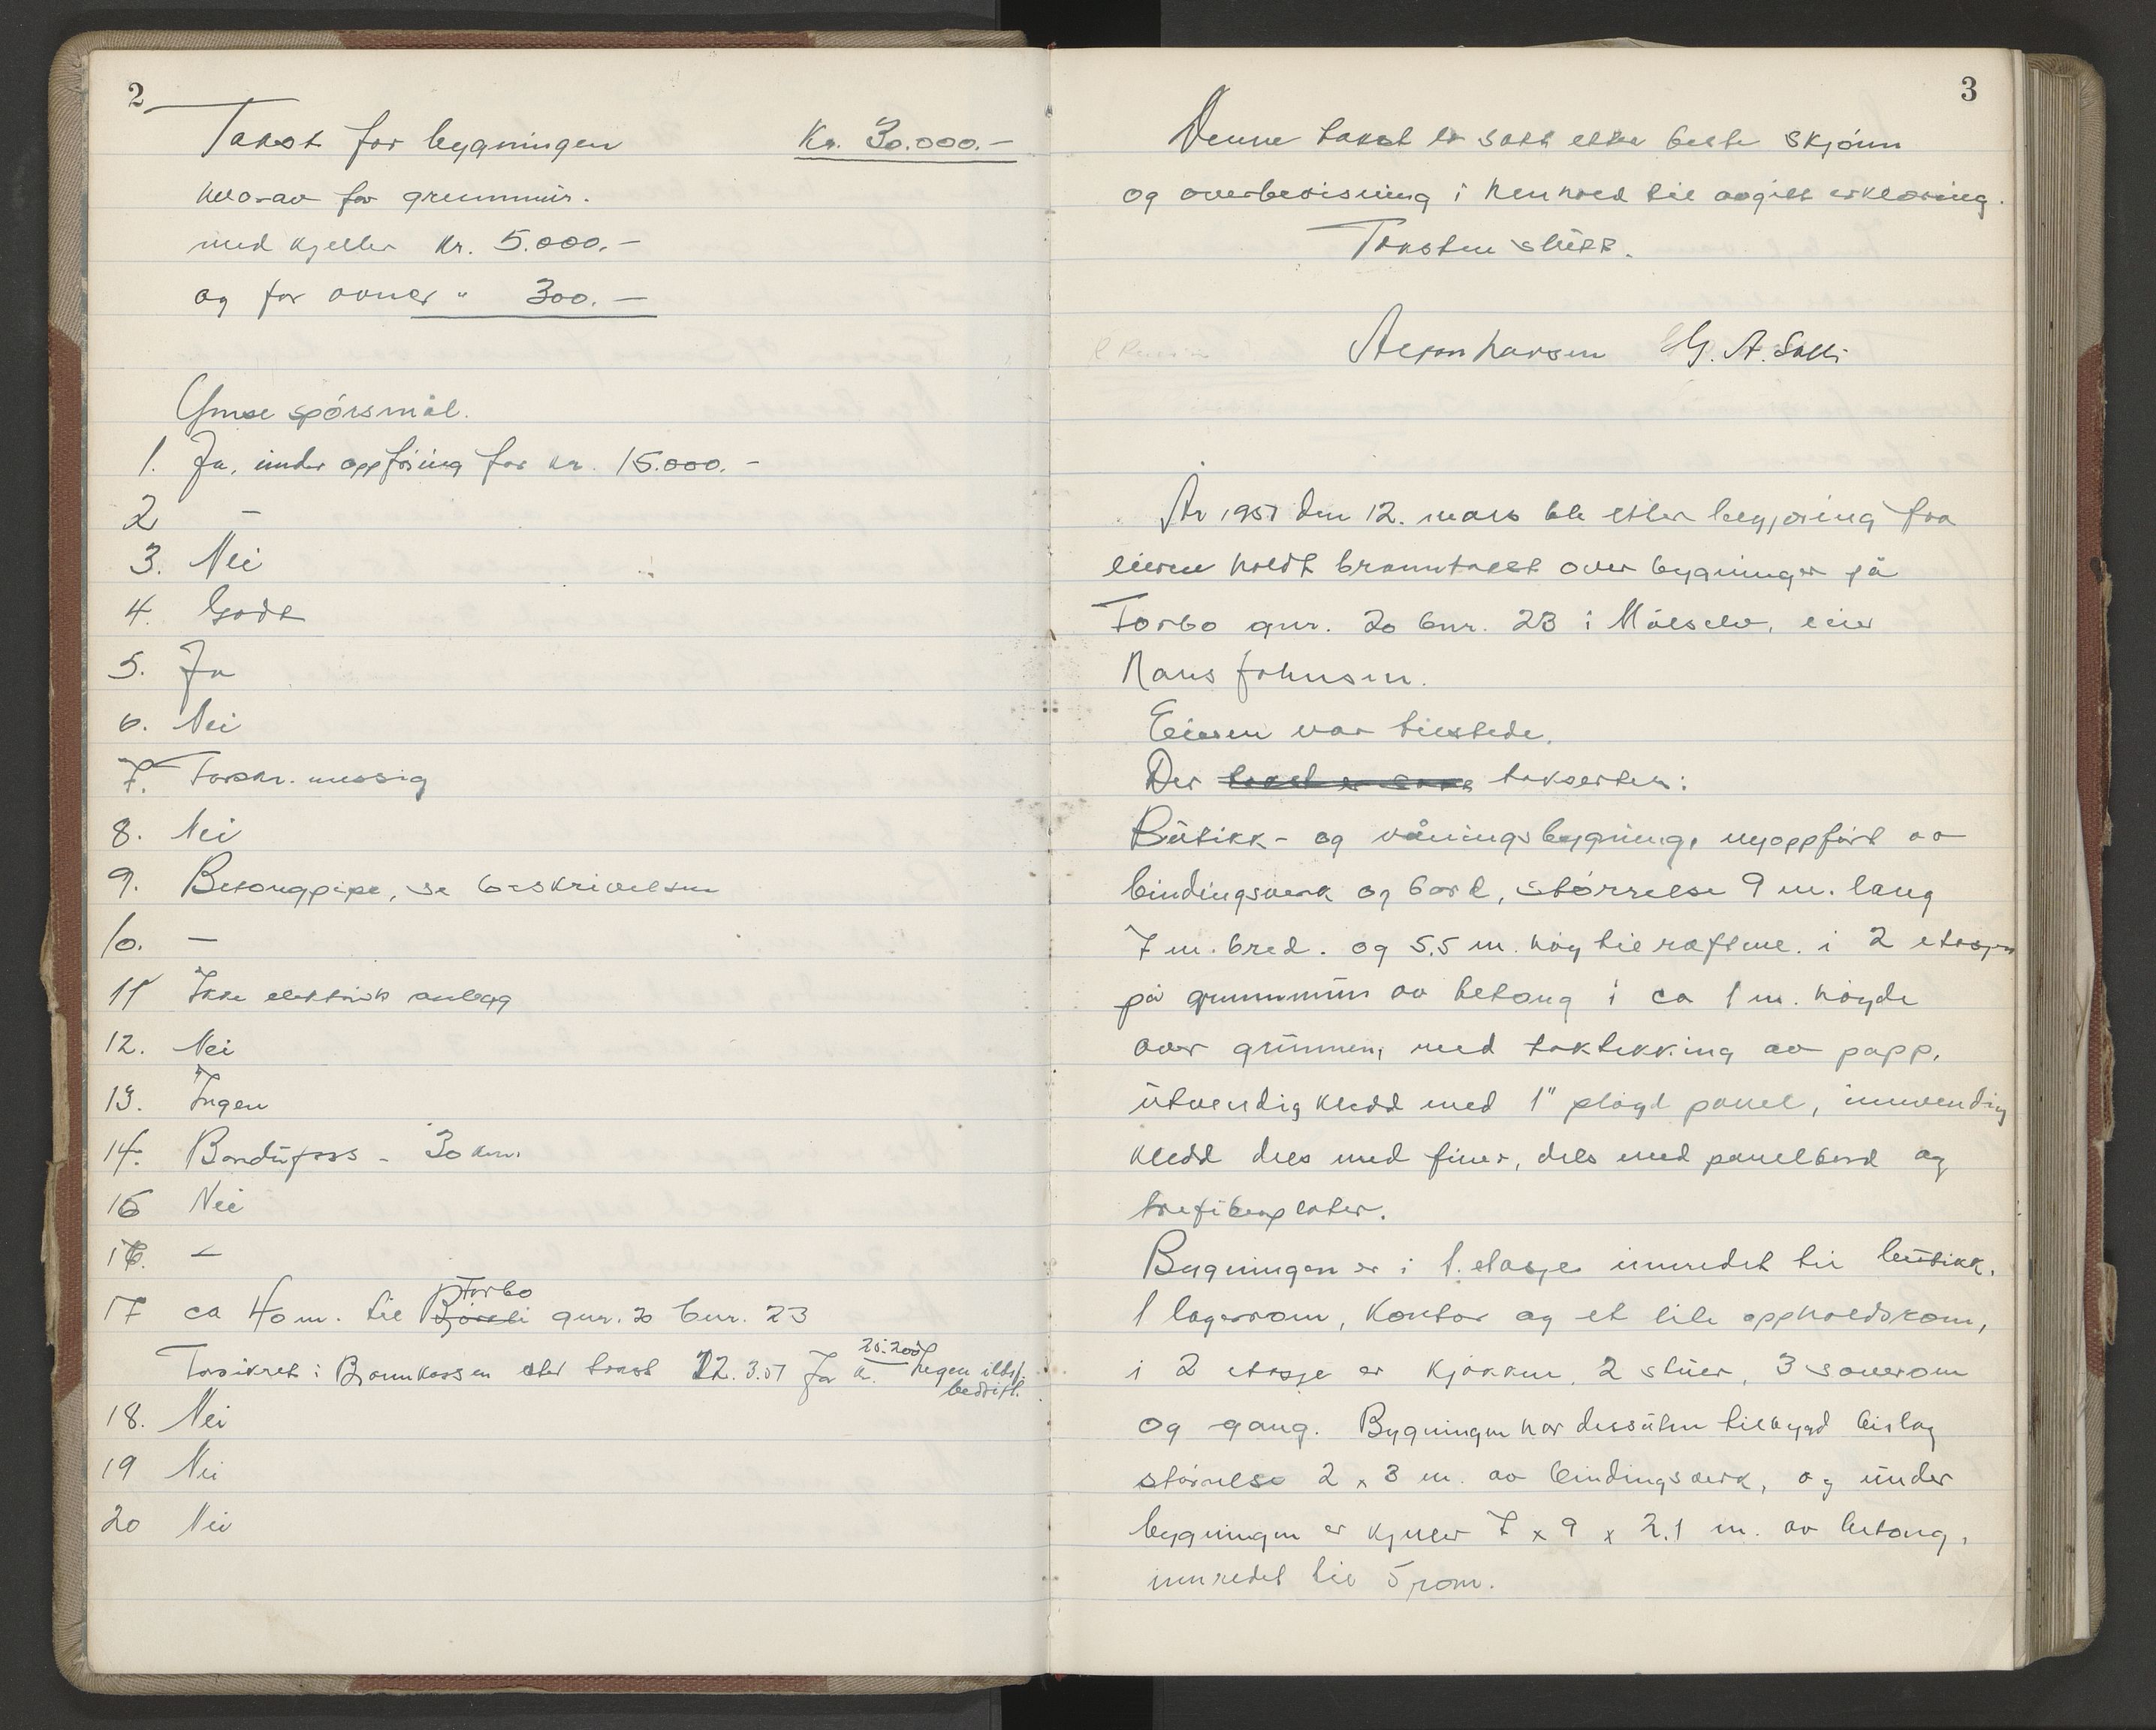 2
Takst for bygningen Kr. 30.000.-
hvorav for grunnmur.
med kjeller kr. 5.000.-
og for ovner " 300.-
Ymse spörsmål.
1. Ja, under oppföring for kr. 15.000.-
2 -
3. Nei
4. Godt
5. Ja
6. Nei
7. Forskr. messig
8. Nei
9. Betongpipe, se beskrivelsen
10. -
11 Ikke elektrisk anlegg
12. Nei
13. Ingen
14. Bardufoss - 30 km.
15 Nei
16. -
Forbo
17 ca 40 m. til gnr. 20 bnr. 23
25.200
Forsikret i Brannkassen etter takst 12.3.51 for kr. hegen
18. Nei
19 Nei
20 Nei
3
Denne takst er satt etter beste skjönn
og overbevisning i henhold til avgitt erklæring.
Taksten slutt.
Larsen
År 1951 den 12. mars ble etter begjæring fra
eieren holdt branntakst over bygninger på
Forbo gnr. 20 bnr. 23 i Målselv, eier
Hans Johnsen.
Eieren var tilstede.
Der takst er takserter:
Butikk- og våningsbygning, nyoppfört av
bindingsverk og bord, störrelse 9 m. lang
7 m. bred. og 5,5 m. höy til raftene. i 2 etasjer
på grunnmur av betong i ca 1 m. höyde
over grunnen, med taktekking av papp,
utvendig kledd med 1" plöyd panel, innvendig
kledd dels med finer, dels med panelbord og
trefiberplater.
Bygningen er i 1. etasje innredet til butikk.
1 lagerrom, kontor og et lite oppholdsrom,
i 2 etasje er kjökken, 2 stuer, 3 soverom
og gang. Bygningen har dessuten tilbygd bislag
störrelse 2 x 3 m. av bindingsverk, og under
bygningen er kjeller 7 x 9 x 2.1 m. av betong,
innredet til 5 rom.